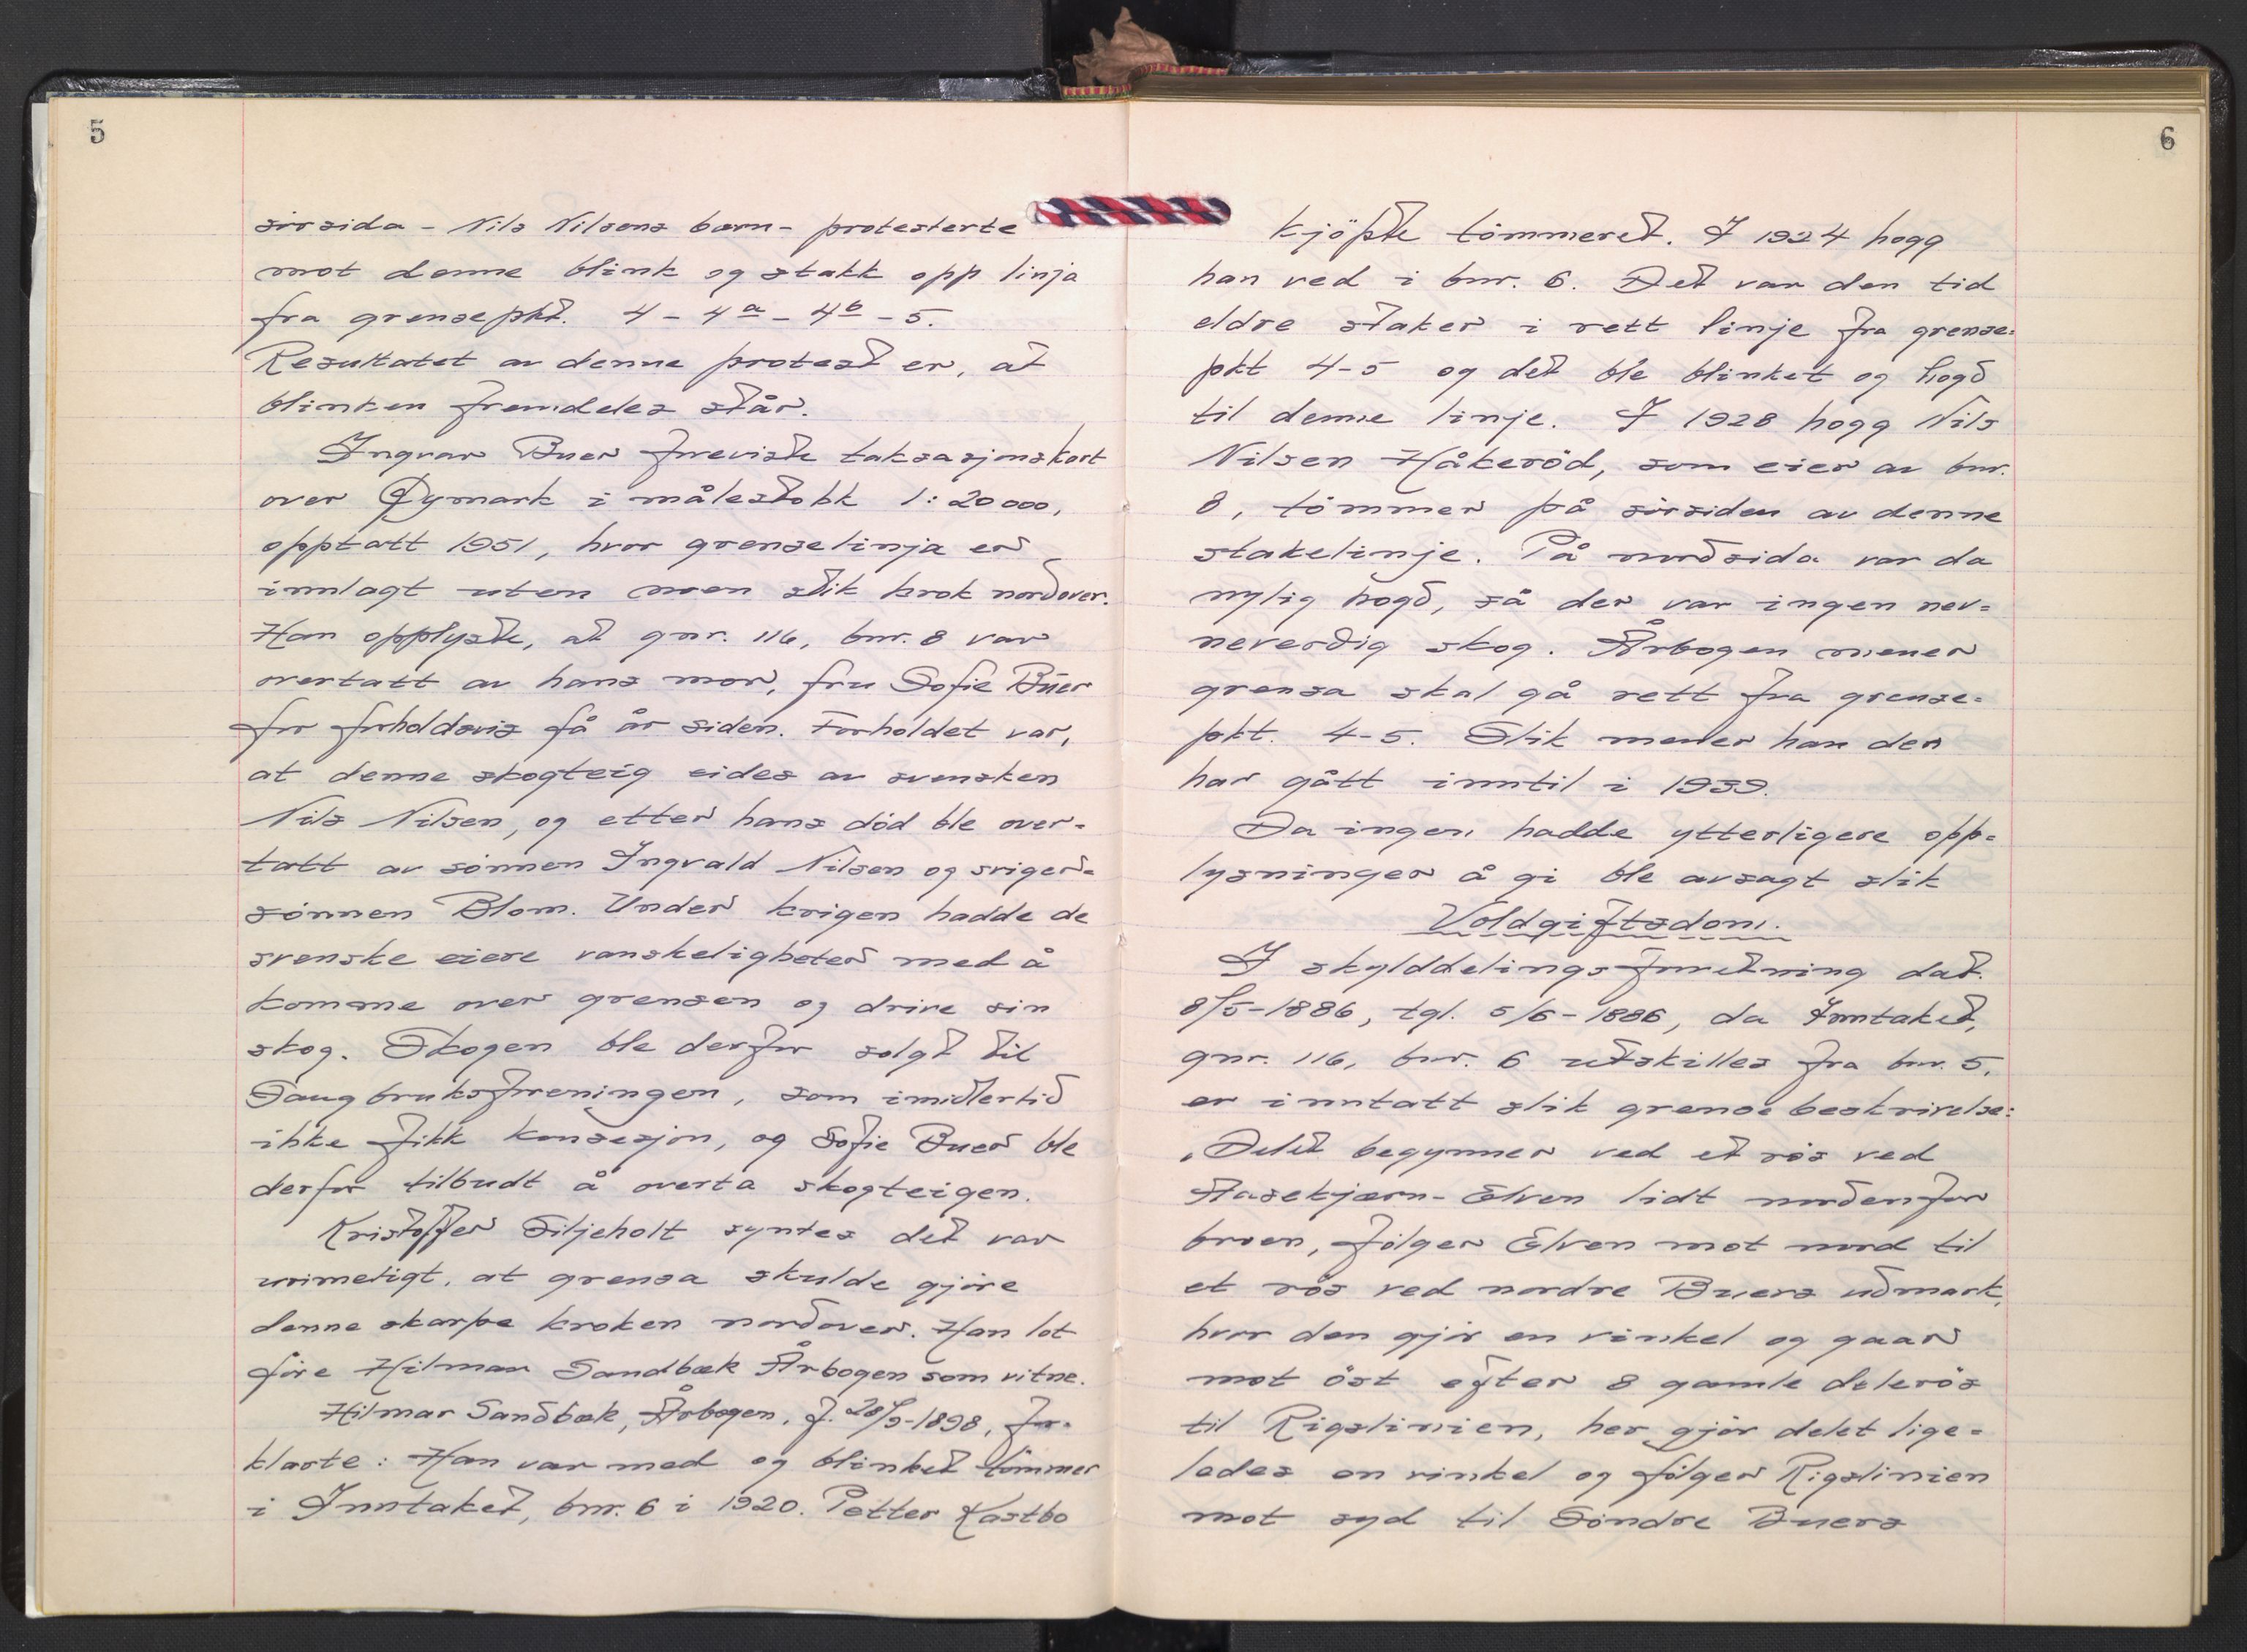 5
sörsida - Nils Nilsens barn - protesterte
mot denne blink og stakk opp linja
fra grensepkt. 4 - 4a - 4b - 5.
Resultatet av denne protest er, at
blinken fremdeles står.
Ingvar Buer foreviste taksasjonskart
over Öymark i målestokk 1:20000,
opptatt 1951, hvor grenselinja er
innlagt uten noen slik krok nordover.
Han opplyste, at gnr. 116, bnr. 8 var
overtatt av hans mor, fru Sofie Buer
for forholdsvis få år siden. Forholdet var,
at denne skogteig eides av svensken
Nils Nilsen, og etter hans död ble over-
tatt av sönnen Ingvald Nilsen og sviger-
sönnen Blom. Under krigen hadde de
svenske eiere vanskeligheter med å
komme over grensen og drive sin
skog. Skogen ble derfor solgt til
Saugbruksforeningen, som imidlertid
ikke fikk konsesjon, og Sofie Buer ble
derfor tilbudt å overta skogteigen.
Kristoffer Siljeholt syntes det var
urimeligt, at grensa skulde gjöre
denne skarpe kroken nordover. Han lot
före Hilmar Sandbæk Årbogen som vitne.
Hilmar Sandbæk, Årbogen, f. 28/9-1898, for-
klarte: Han var med og blinket tömmer
i Inntaket, bnr. 6 i 1920. Petter Kastbo
6
kjöpte tömmeret. I 1924 hogg
han ved i bnr. 6. Det var den tid
eldre staker i rett linje fra grense=
pkt 4-5 og det ble blinket og hogd
til denne linje. I 1928 hogg Nils
Nilsen Håkeröd, som eier av bnr.
8, tömmer på sörsiden av denne
stakelinje. På nordsida var da
nylig hogd, så der var ingen nev=
neverdig skog. Årbogen mener
grensa skal gå rett fra grense-
pkt. 4-5. Slik mener han den
har gått inntil i 1939.
Da ingen hadde ytterligere opp=
lysninger å gi ble avsagt slik
Voldgiftsdom.
I skylddelingsforretning dat.
8/5-1886, tgl. 5/6-1886, da Inntaket,
gnr. 116, bnr. 6 utskilles fra bnr. 5,
er inntatt slik grensebeskrivelse:
„Delet begynner ved et rös ved
Aasekjærn-Elven lidt nordenfor
broen, fölger Elven mot nord til
et rös ved nordre Buers udmark,
hvor den gjör en vinkel og gaar
mot öst efter 8 gamle delerös
til Rigslinien, her gjör delet lige=
ledes en vinkel og fölger Rigslinien
mot syd til Söndre Buers